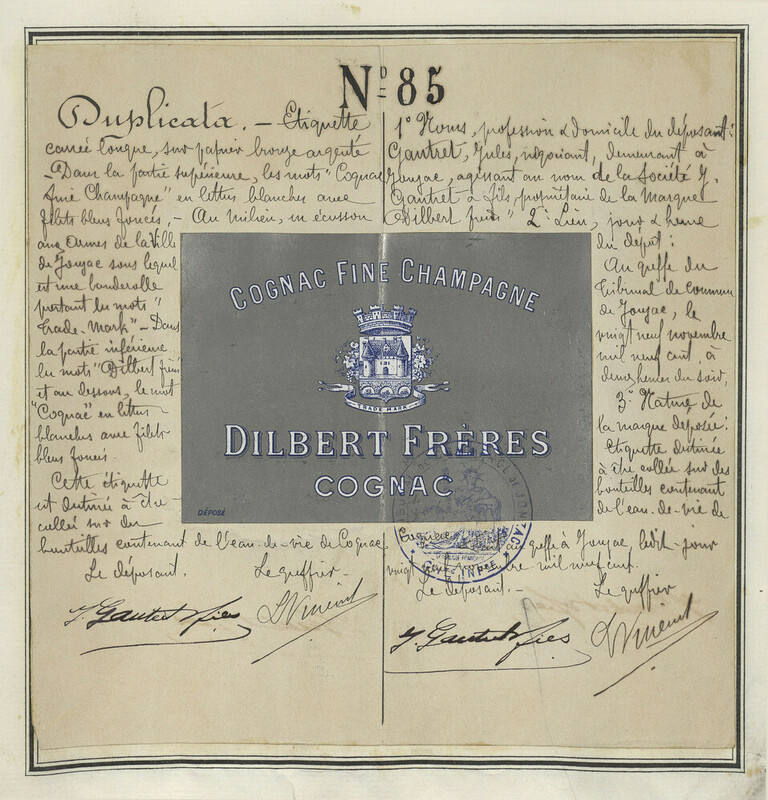 Nº 85
Duplicata. — Etiquette
carrée longue, sur papier bronze argenté
— Dans la partie supérieure, les mots "Cognac
fine Champagne" en lettres blanches avec
filets bleus foncés, — Au milieu, un écusson
aux Armes de la Ville
de Jonzac sous lequel
est une banderolle
portant les mots "
Trade-Mark" — Dans
la partie inférieure
les mots "Dilbert frères"
et au dessous, le mot
"Cognac" en lettres
blanches avec filets
bleus foncés.
Cette étiquette
est destinée à être
collée sur des
bouteilles contenant de l'eau-de-vie de Cognac
Le déposant. Le greffier
J. Gautret & fils LVincent
1º Noms, profession & domicile du déposant:
Gautret, Jules, négociant, demeurant à
Jonzac, agissant au nom de la Société J.
Gautret & fils, propriétaire de la Marque
"Dilbert frères" 2º Lieu, jour & heure
du dépôt:
Au greffe du
Tribunal de Commerce
de Jonzac, le
vingt neuf novembre
mil neuf cent, à
deux heures du soir,
3º Nature de
la marque déposée:
Etiquette destinée
à être collée sur des
bouteilles contenant
de l'eau-de-vie de
au greffe à Jonzac, ledit jour
vingt neuf novembre mil neuf cent.
Le déposant. — Le greffier
J. Gautret & fils LVincent
COGNAC FINE CHAMPAGNE
TRADE MARK
DILBERT FRÈRES
COGNAC
DÉPOSÉ
INPI